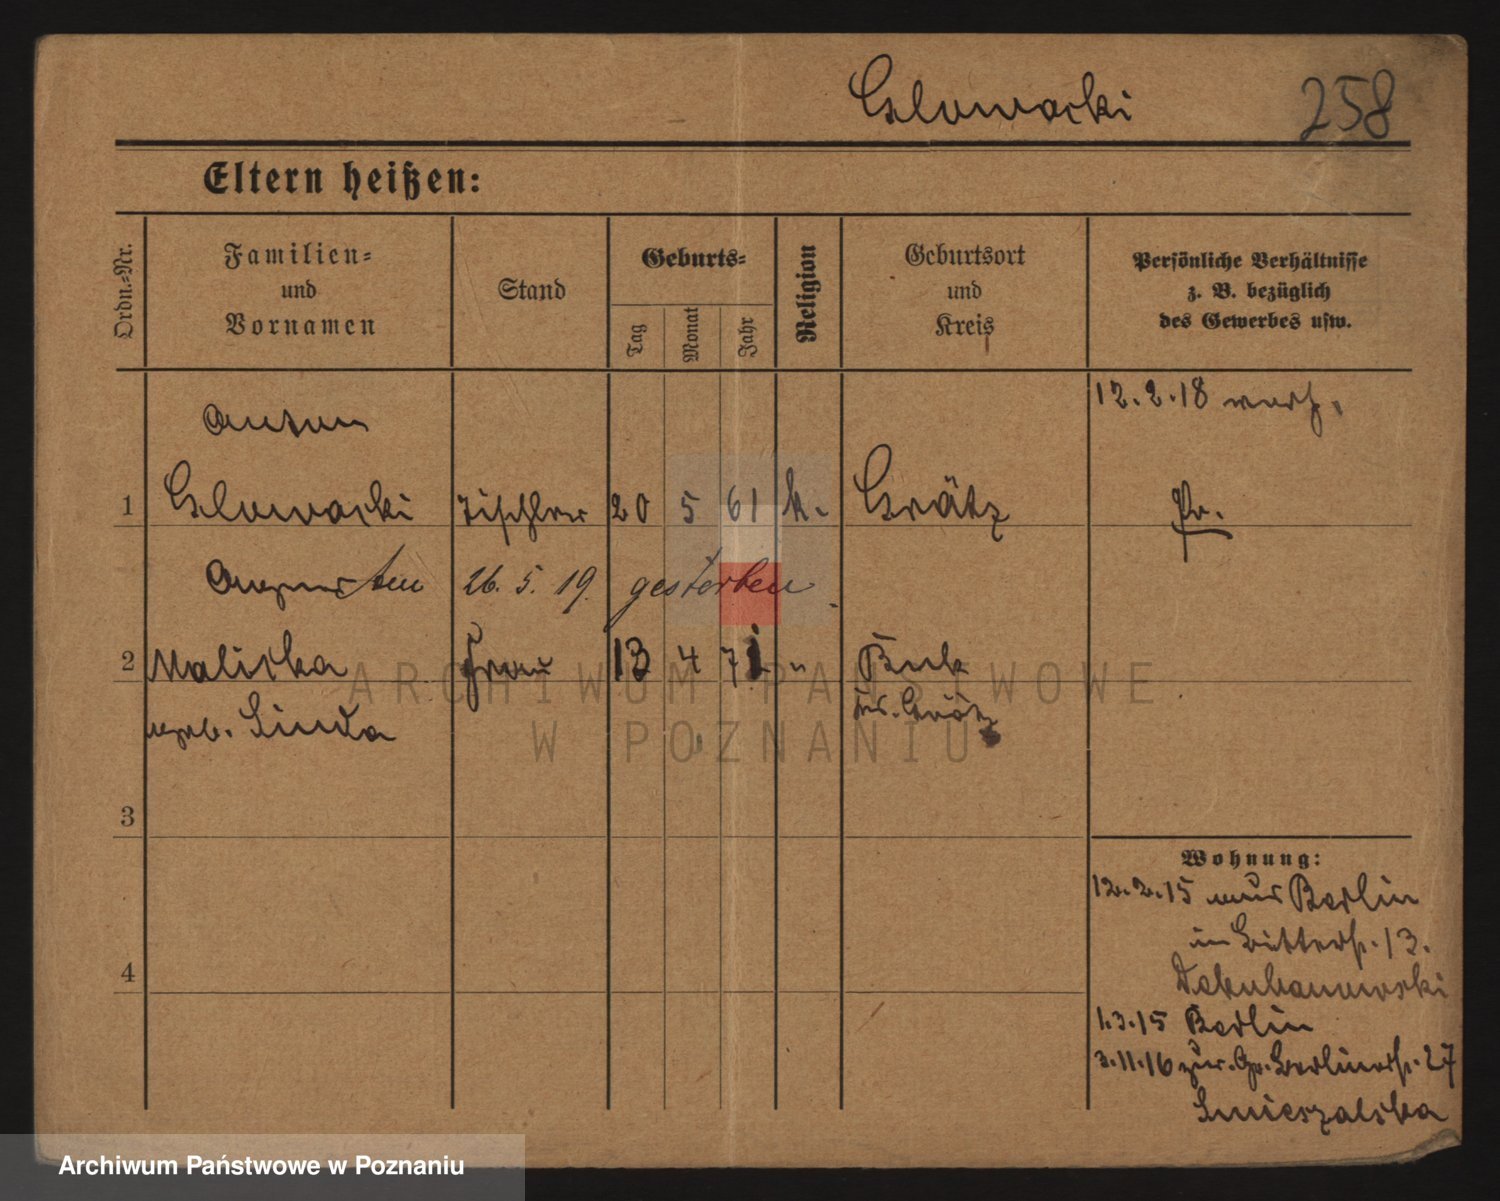 Glowacki 258
Eltern heißen:
Ordn.-Nr.
Familien-
und
Vornamen
Stand
Geburts-
Tag
Monat
Jahr
Religion
Geburtsort
und
Kreis
Persönliche Verhältnisse
z. B. bezüglich
des Gewerbes usw.
12.2.18
Anton
1 Glowacki Tischler 20 5 61 k. Grätz Pr.
26.5.19. gestorben
2 Frau 13 4 71 " Buk
geb. Linda Kr. Grätz
3
4
Wohnung:
12.2.15 Berlin
13.
1.3.15 Berlin
3.11.16 zur. Gr. Berlinerstr. 27
ARCHIWUM PAŃSTWOWE
W POZNANIU
Archiwum Państwowe w Poznaniu